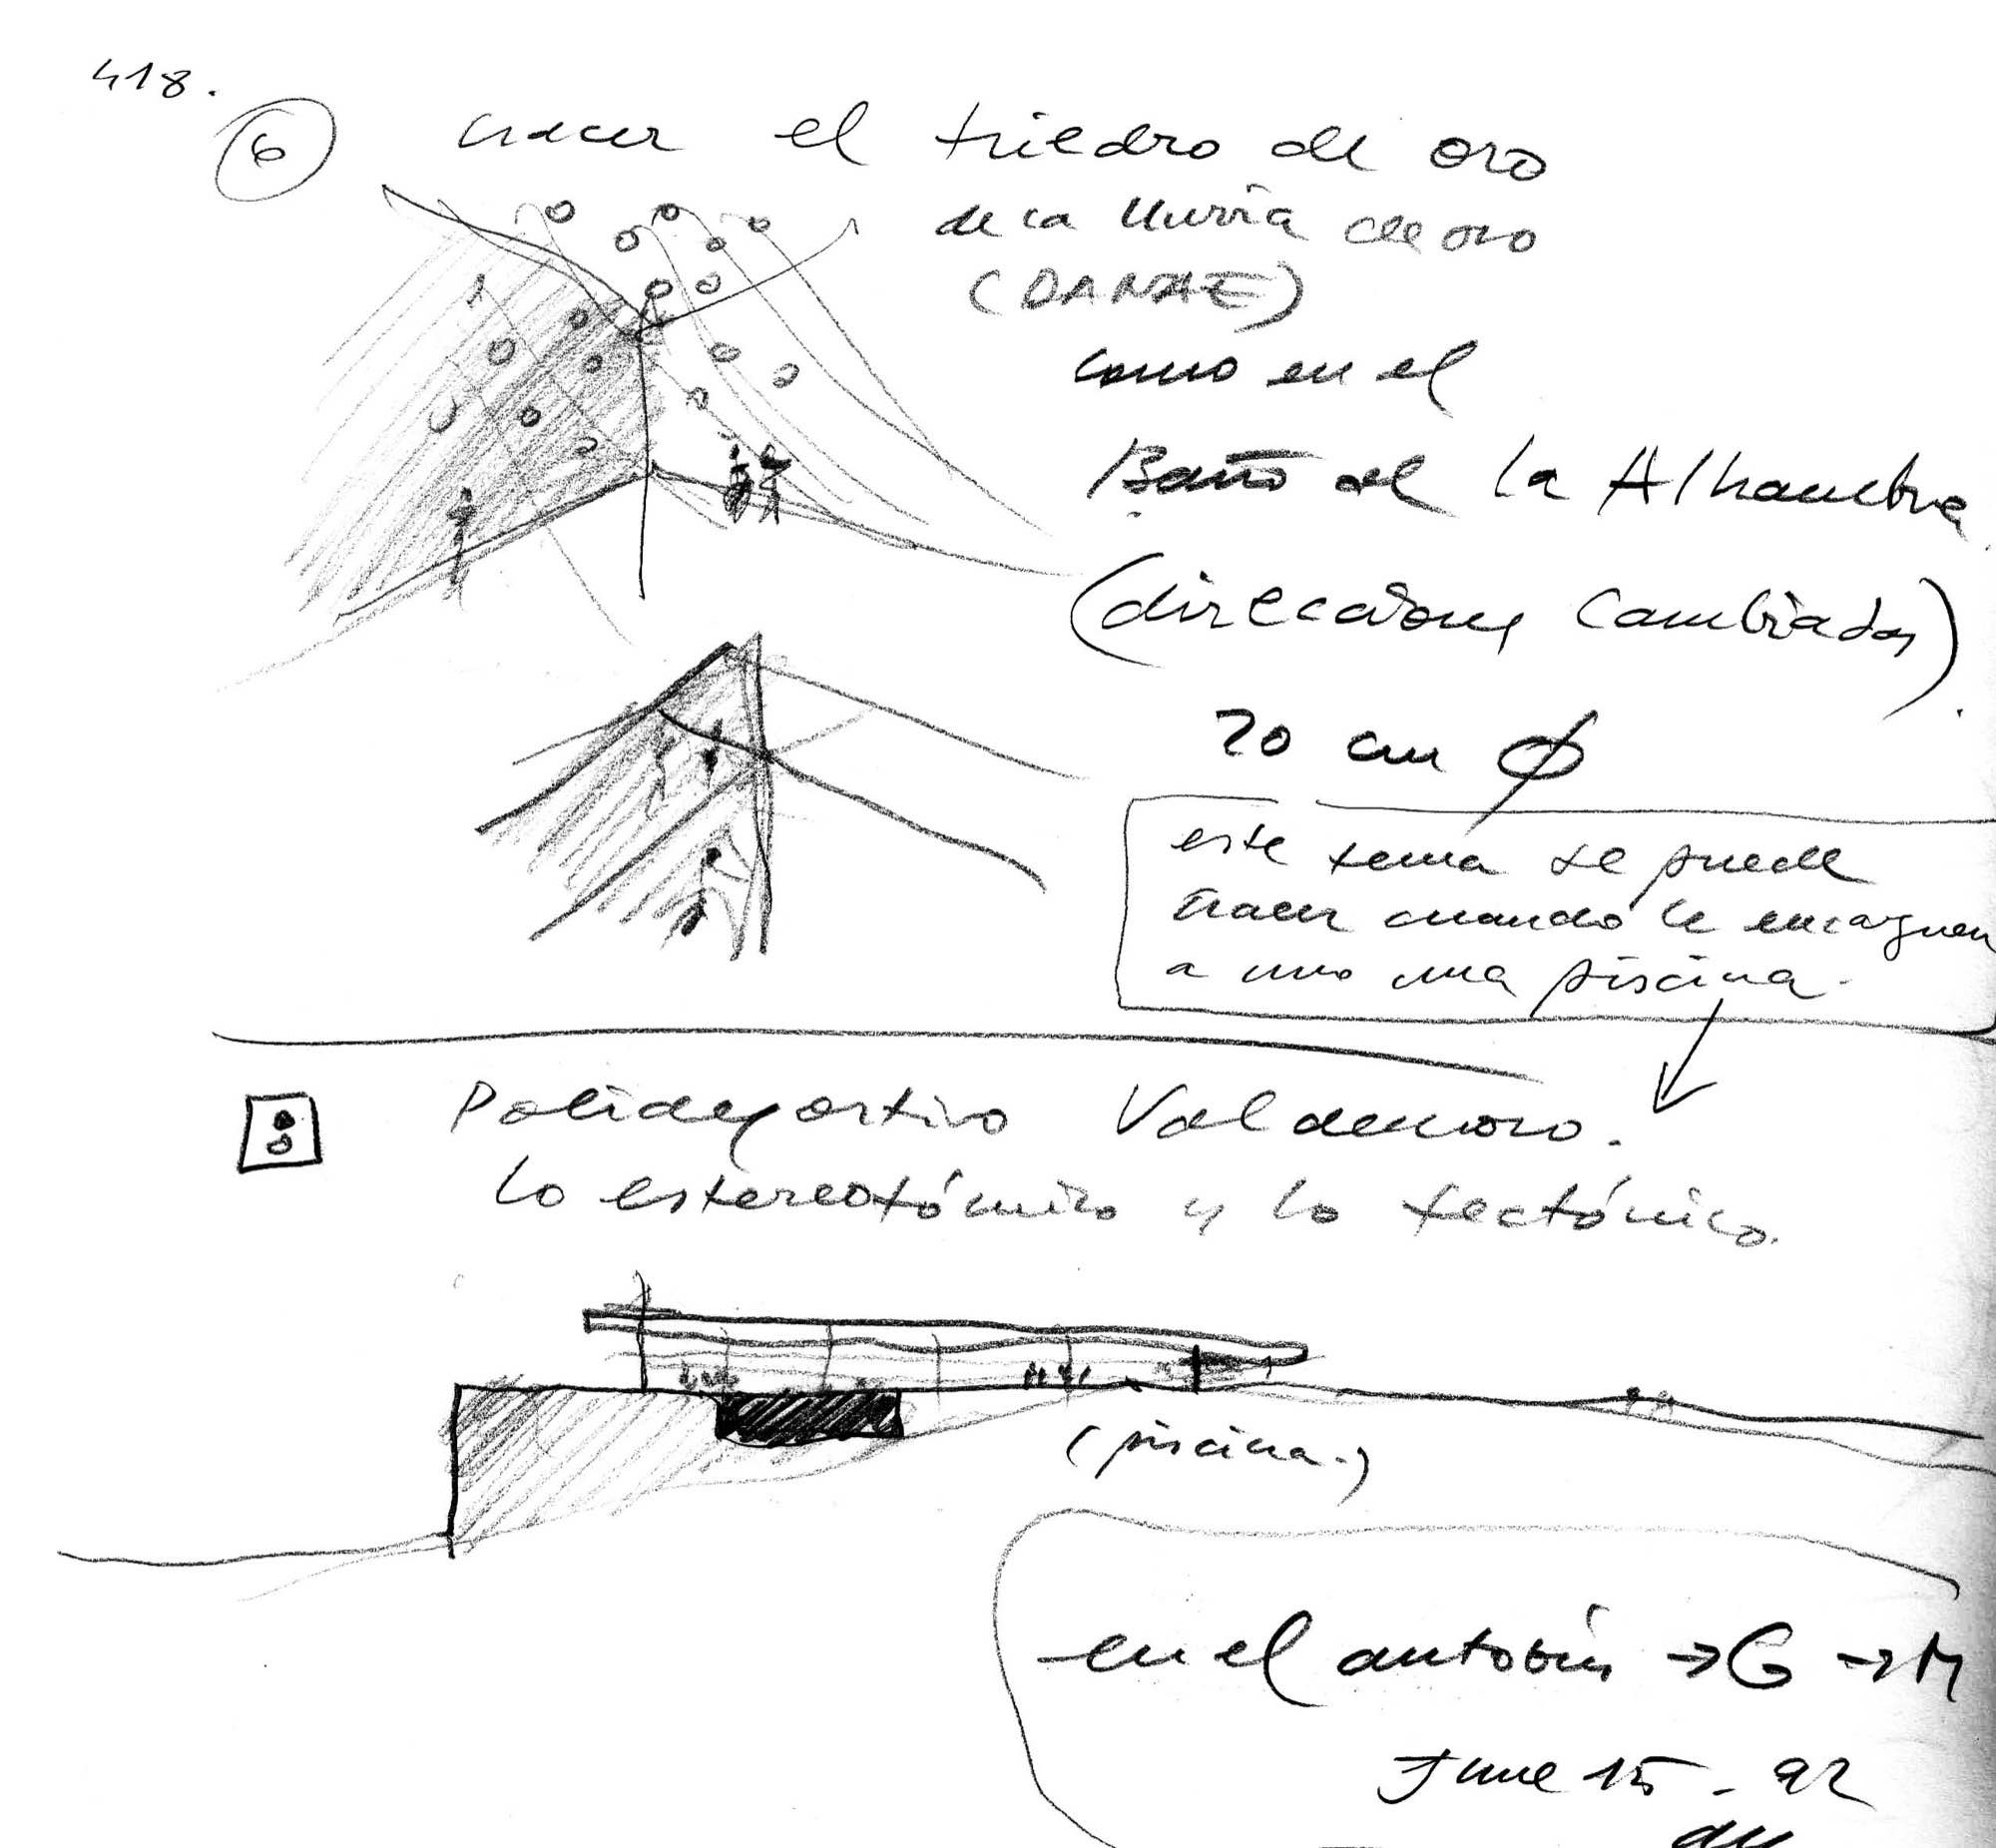 418.
6 hacer el triedro de oro
de la lluvia de oro
(DANAE)
como en el
Baño de la Alhambra
(direcciones cambiadas).
20 cm Ø
este tema se puede
hacer cuando le encarguen
a uno una piscina.
Polideportivo Valdemoro.
lo estereotómico y lo tectónico.
(piscina.)
en el autobús → G → M
June 15 - 92